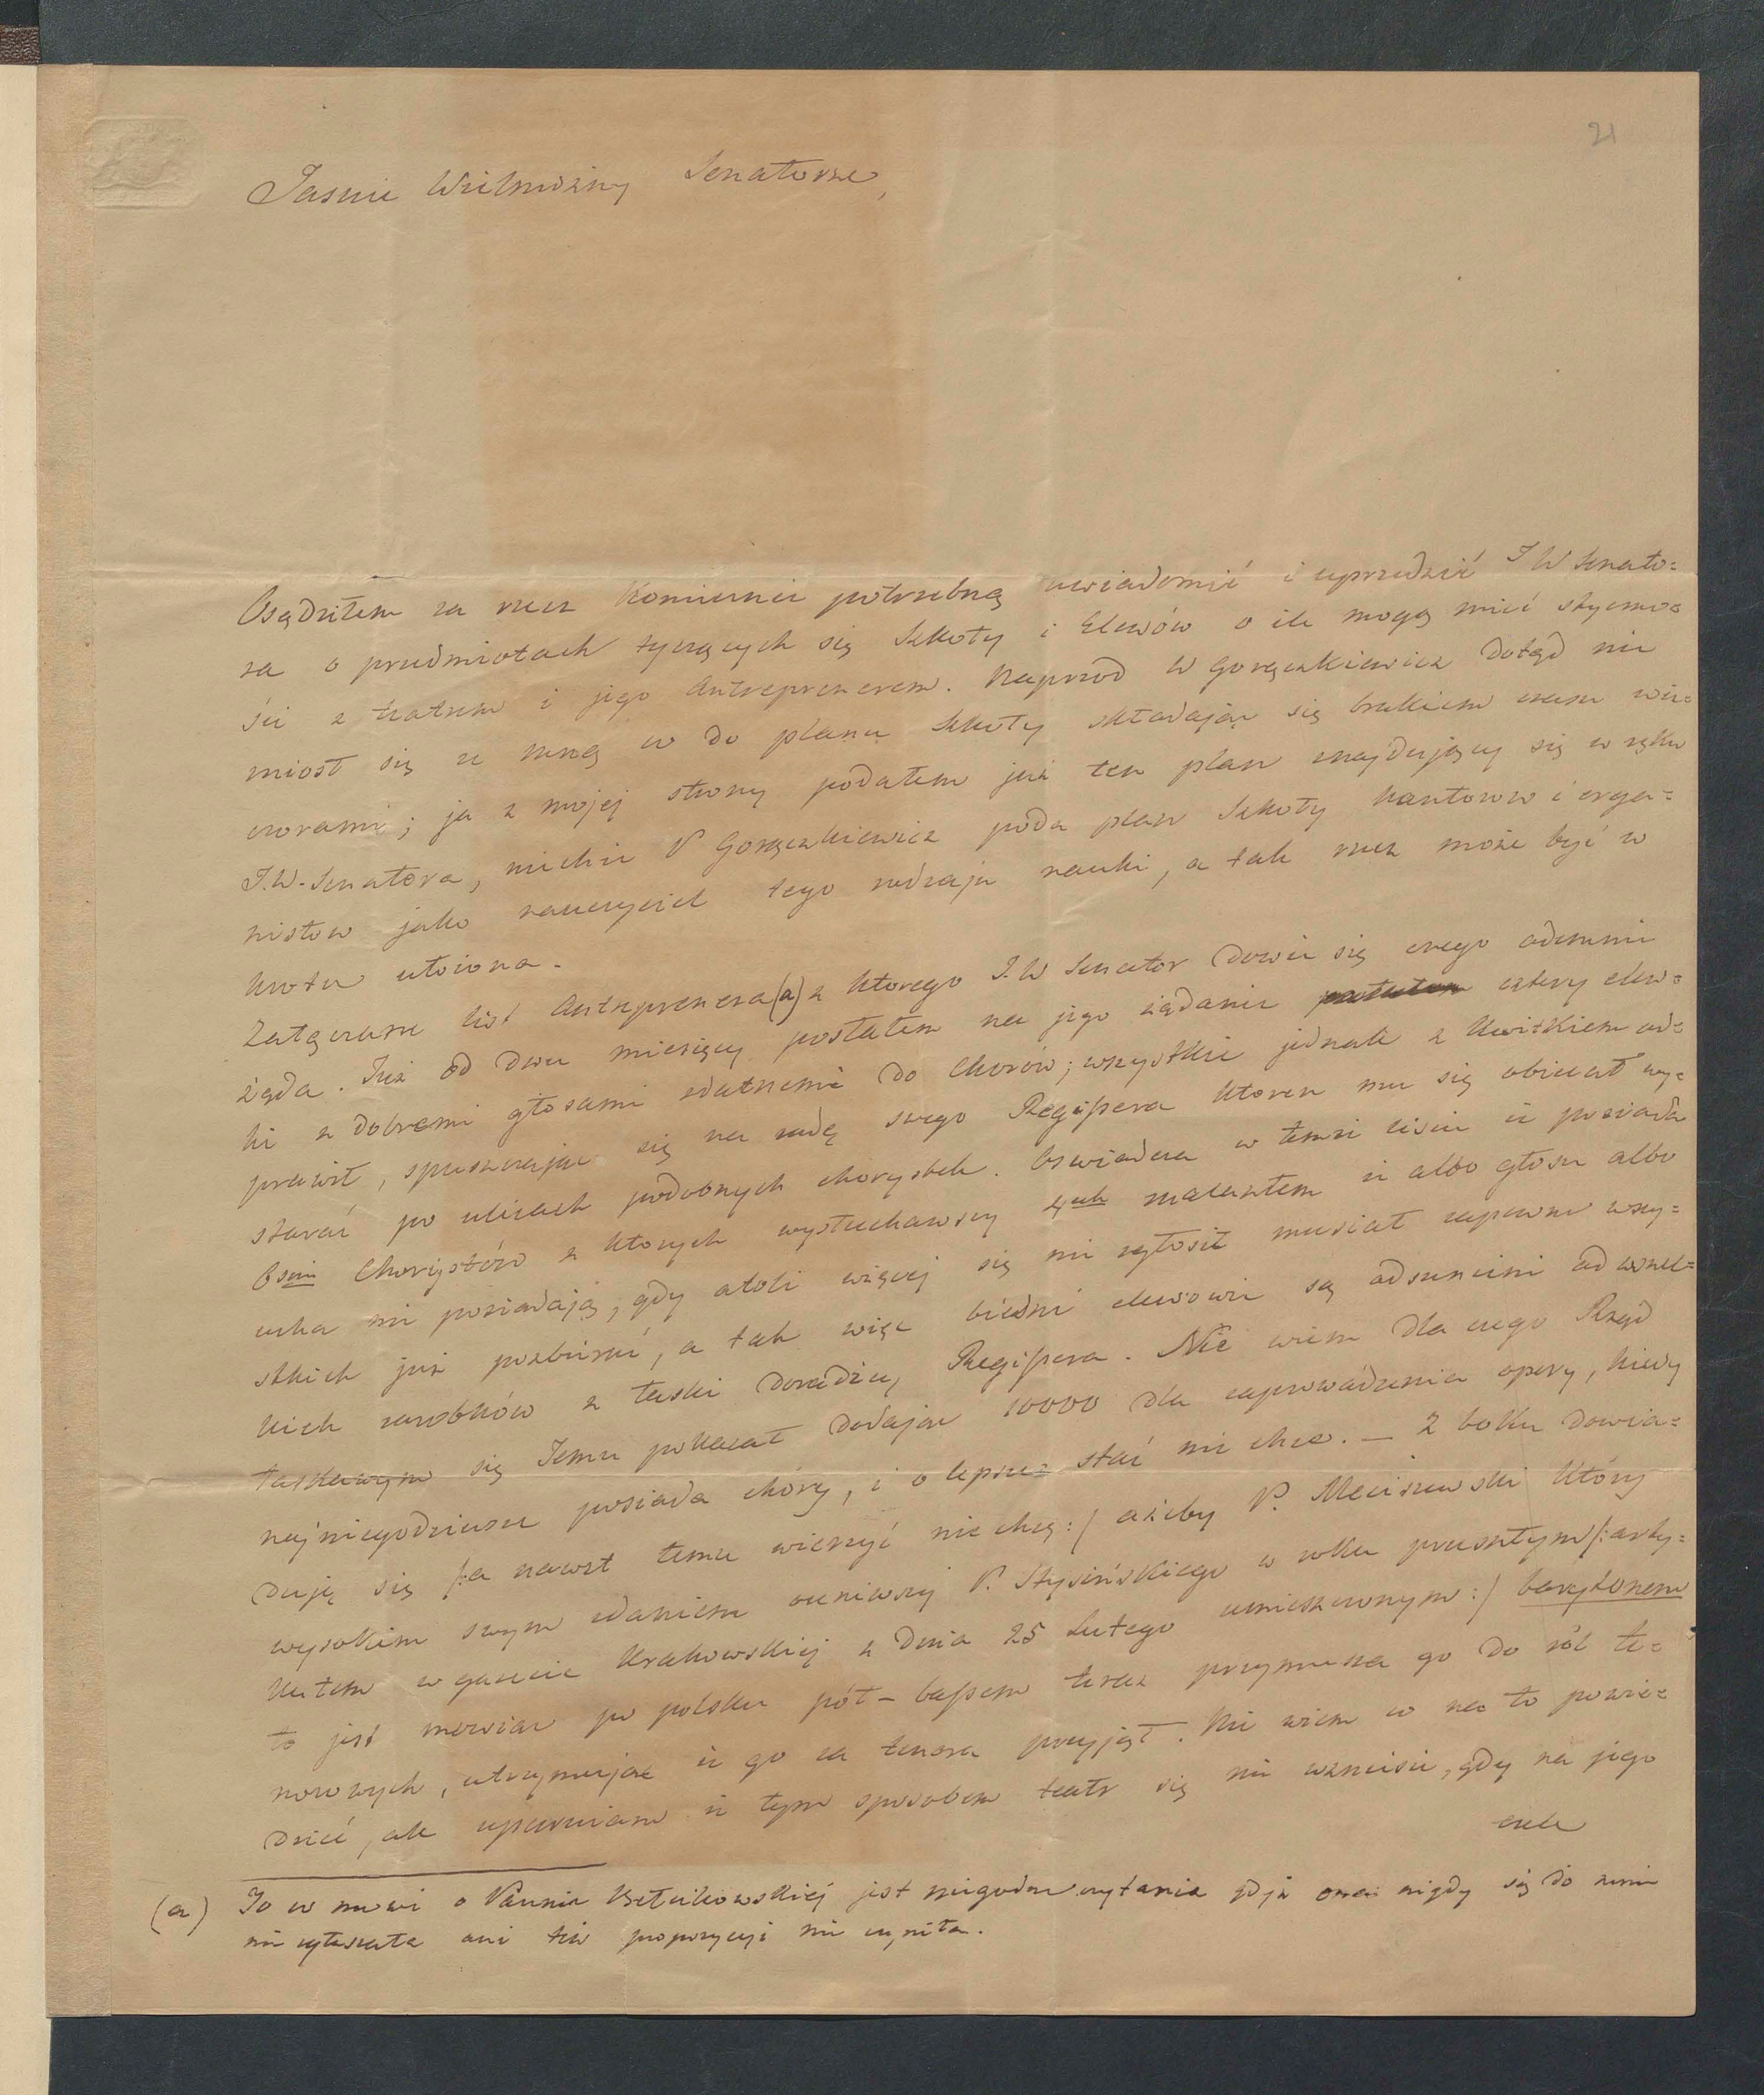 21
Jasnie Wielmożny Senatorze,
Osądziłem za rzecz koniecznie potrzebną uwiadomić i uprzedzić J W Senato=
ra o przedmiotach tyczących się Szkoły i Elewów o ile mogą mieć styczno=
ści z teatrem i jego Antreprenerem. Naprzod W Gorączkiewicz dotąd nie
zniosł się ze mną co do planu Szkoły składając się brakiem czasu wie=
czorami; ja z mojej strony podałem już ten plan znajdujący się w ręku
J.W. Senatora, niechże P Gorączkiewicz poda plan Szkoły kantorow i orga=
nistow jako nauczyciel tego rodzaju nauki, a tak rzecz może być w
krotce ułożona.
Załączam list Antreprenera (a) z ktorego J.W Senator dowie się czego odemnie
żąda. Już od dwu miesięcy posłałem na jego żądanie cztery elew=
ki z dobremi głosami zdatnemi do Chorów; wszystkie jednak z kwitkiem od=
prawił, spuszczając się na radę swego Regißera ktoren mu się obiecał wy=
starać po ulicach podobnych chorystek. Oświadcza w temże liście iż posiada
8em Chorystów z ktorych wysłuchawszy 4ech znalazłem iż albo głosu albo
ucha nie posiadają, gdy atoli więcej się nie zgłosił musiał zapewne wszy=
stkich już pozbierać, a tak więc biedni elewowie są odsunieni od wszel=
kich zarobków z łaski doradzcy Regißera. Nie wiem dla czego Rząd
łaskawym się Jemu pokazał dodając 10000 dla zaprowadzenia opery, kiedy
najniegodziwsze posiada chóry, i o lepsze stać nie chce. — Z boku dowia=
duję się /:a nawet temu wierzyć nie chcę:/ ażeby P. Meciszewski który
wysokiem swym zdaniem oceniwszy P. Stysińskiego w roku przeszłym /:arty=
kułem w gazecie Krakowskiej z dnia 25 Lutego umieszczonym:/ barytonem
to jest mowiąc po polsku pół-baßem teraz przymusza go do ról te=
norowych, utrzymując iż go za tenora przyjął. Nie wiem co na to powie=
dzieć, ale upewniam iż tym sposobem teatr się nie wzniesie, gdy na jego
czele
(a) To co mowi o Pannie jest niegodne czytania gdyż ona nigdy się do mnie
nie zgłaszała ani też propozycyi nie czyniła.